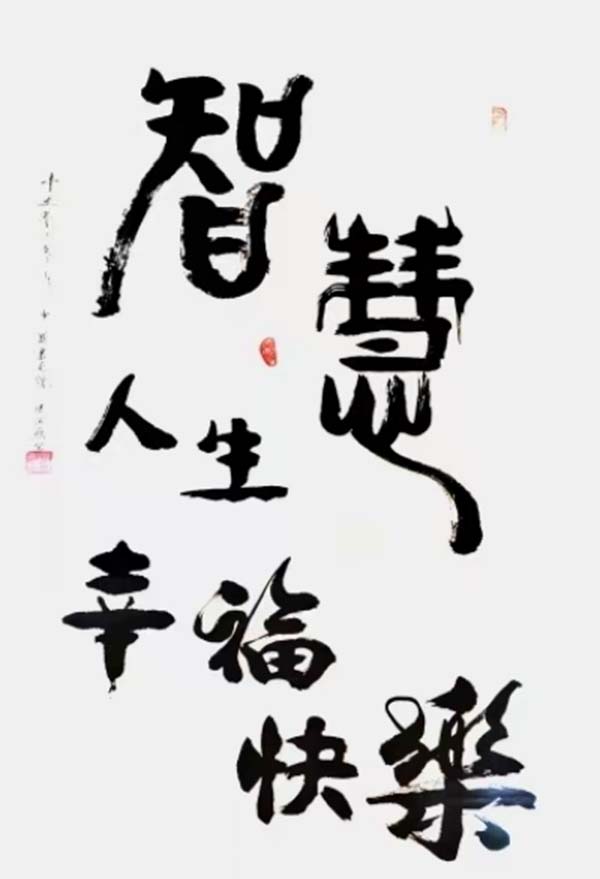 智慧
人生
幸福
快樂